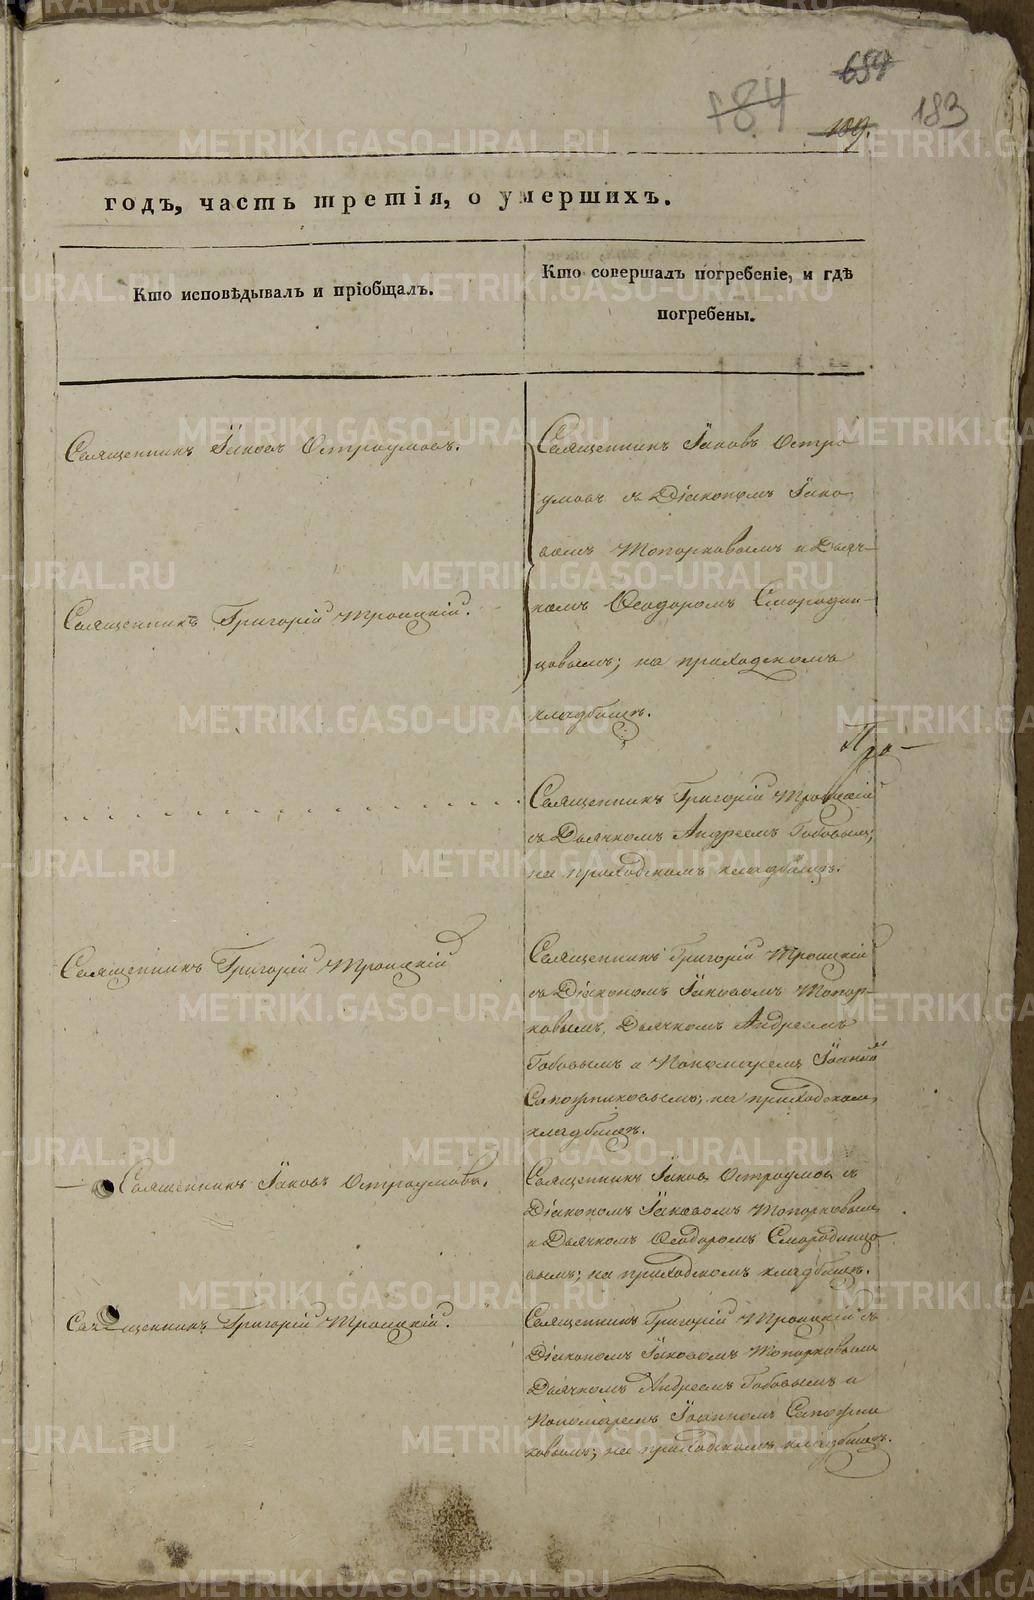 684
184
109.
183
годъ, часть третія, о умершихъ.
Кто исповѣдывалъ и пріобщалъ.
Кто совершалъ погребеніе, и гдѣ
погребены.
Священникъ Іаковъ Остроумовъ.
Священникъ Іаковъ Остро
умовъ съ Діакономъ Іако
вомъ Топорковымъ и Дьяч-
комъ Ѳеодоромъ Смородин-
цовымъ; на приходскомъ
кладбищѣ.
Священникъ Григорій Троицкій.
Священникъ Григорій Троицкій
съ Дьячкомъ Андреемъ Бобовымъ;
на приходскомъ кладбищѣ.
Священникъ Григорій Троицкій
Священникъ Григорій Троицкій
съ Діакономъ Іаковомъ Топор-
ковымъ, Дьячкомъ Андреемъ
Бобовымъ и Пономаремъ
Сапожниковымъ; на приходскомъ
кладбищѣ.
Священникъ Іаковъ Остроумовъ.
Священникъ Іаковъ Остроумовъ съ
Діакономъ Іаковомъ Топорковымъ
и Дьячкомъ Ѳеодоромъ Смородинцо
вымъ; на приходскомъ кладбищѣ.
Священникъ Григорій Троицкій.
Священникъ Григорій Троицкій съ
Діакономъ Іаковомъ Топорковымъ
Дьячкомъ Андреемъ Бобовымъ и
Пономаремъ Іоанномъ Сапожни
ковымъ; на приходскомъ кладбищѣ.
METRIKI.GASO-URAL.RU